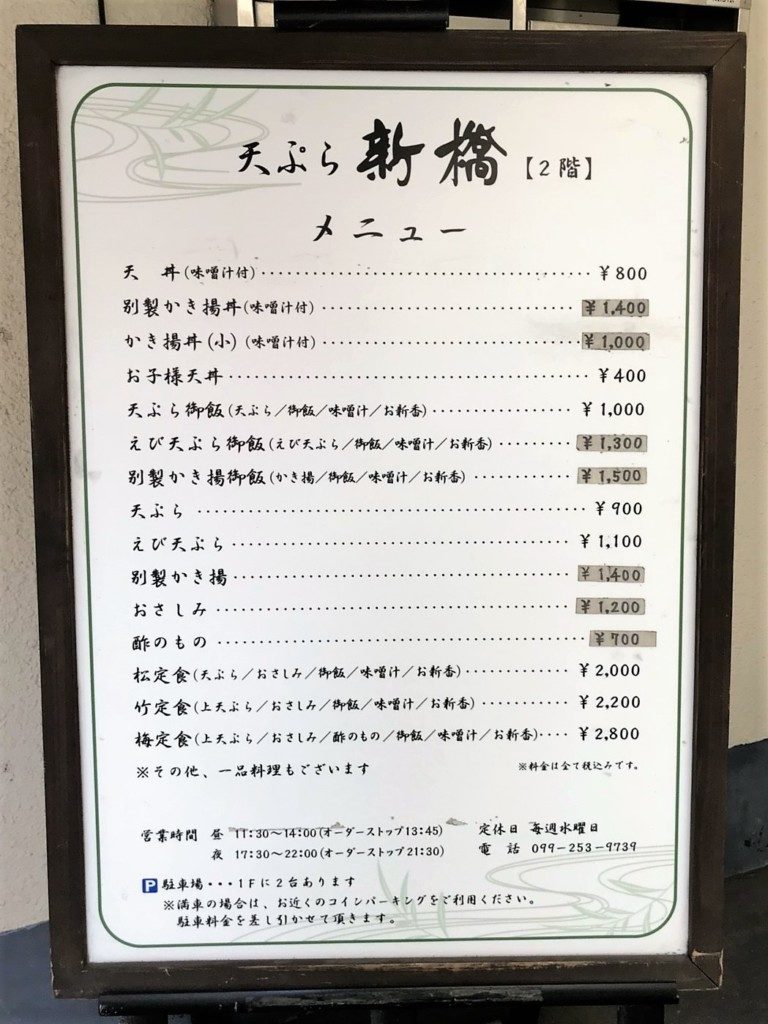 天ぷら 新橋【2階】
メニュー
天 丼(味噌汁付)・・・・・・・・・・・・・・・・・・・・ ¥800
別製かき揚丼(味噌汁付)・・・・・・・・・・・・・・・・・・・・ ¥1,400
かき揚丼(小)(味噌汁付)・・・・・・・・・・・・・・・・・・・・ ¥1,000
お子様天丼・・・・・・・・・・・・・・・・・・・・ ¥400
天ぷら御飯(天ぷら/御飯/味噌汁/お新香)・・・・・・・・・・ ¥1,000
えび天ぷら御飯(えび天ぷら/御飯/味噌汁/お新香)・・・・・・ ¥1,300
別製かき揚御飯(かき揚/御飯/味噌汁/お新香)・・・・・・・・ ¥1,500
天ぷら・・・・・・・・・・・・・・・・・・・・ ¥900
えび天ぷら・・・・・・・・・・・・・・・・・・・・ ¥1,100
別製かき揚・・・・・・・・・・・・・・・・・・・・ ¥1,400
おさしみ・・・・・・・・・・・・・・・・・・・・ ¥1,200
酢のもの・・・・・・・・・・・・・・・・・・・・ ¥700
松定食(天ぷら/おさしみ/御飯/味噌汁/お新香)・・・・・・・・ ¥2,000
竹定食(上天ぷら/おさしみ/御飯/味噌汁/お新香)・・・・・・・ ¥2,200
梅定食(上天ぷら/おさしみ/酢のもの/御飯/味噌汁/お新香)・・・・ ¥2,800
※その他、一品料理もございます
※料金は全て税込みです。
営業時間 昼 11:30〜14:00(オーダーストップ13:45)
夜 17:30〜22:00(オーダーストップ21:30)
定休日 毎週水曜日
電 話 099-253-9739
P 駐車場・・・1Fに2台あります
※満車の場合は、お近くのコインパーキングをご利用ください。
駐車料金を差し引かせて頂きます。